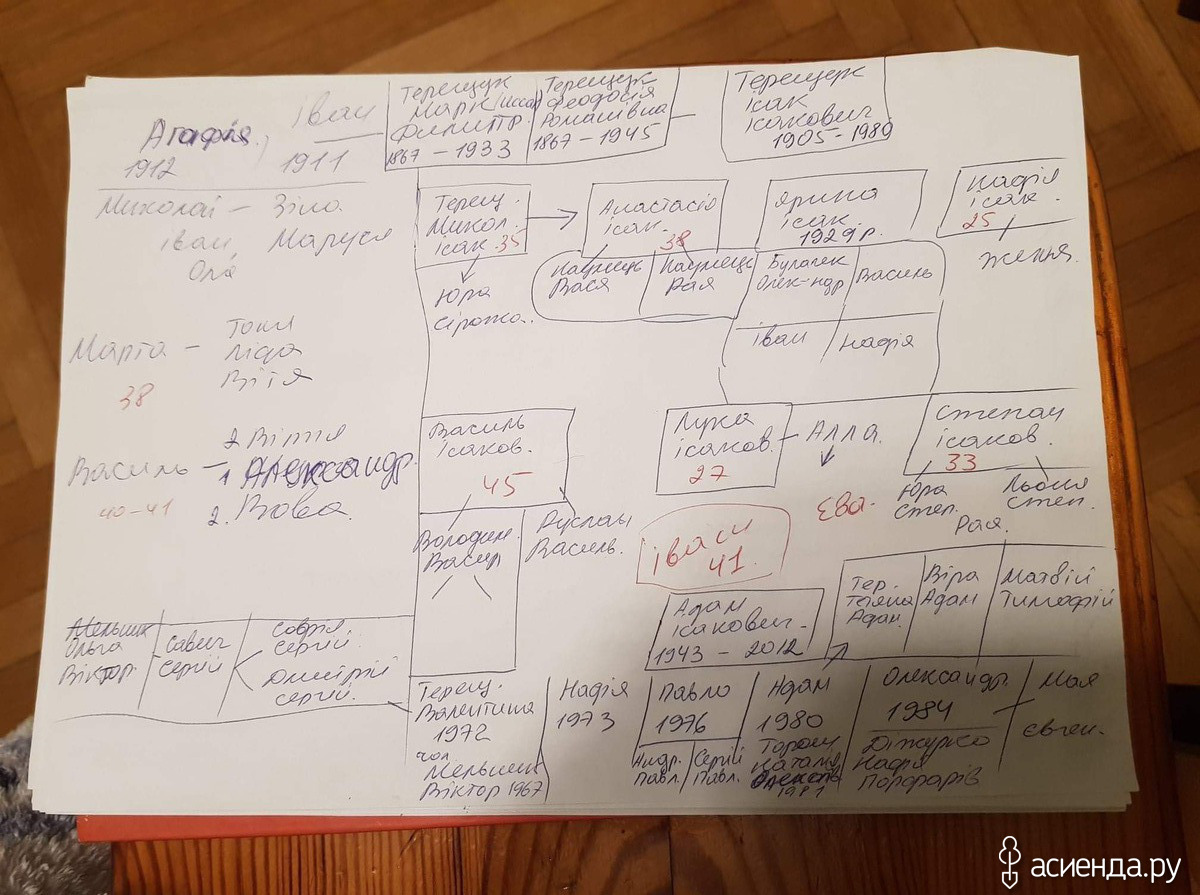 Агафія,
1912
Іван
1911
Терещук
Марк
Филипр.
1867 – 1933
Терещук
Феодосія
Романівна
1867 – 1945
Терещук
Ісак
Ісакович
1905 – 1980
Миколай – Зіна
Іван Маруся
Оля
Марта –
38
Ліда
Вітя
Василь –
40-41
2. Вітя
1 Александр.
2. Вова
Терещ.
Микол.
ісак. 35
Юра
Анастасія
ісак. 38
Вася
Рая
Ярина
ісак.
1929 р.
Олек-ндр
Василь
Іван
Надія
Надія
ісак.
25
Женя.
Василь
ісаков.
45
Володим.
Васил
Руслан
Василь.
Лука
ісаков.
27
– Алла.
Єва.
Івасик
41.
Степан
ісаков.
33
Юра
Степ.
Рая.
Льоня
Степ.
Адам
Ісакович –
1943 – 2012
Тер.
Тетяна
Адам.
Віра
Адам
Матвій
Тимофій
Мельник
Ольга
Віктор.
Савич
Сергій
Софія
Сергій.
Дмитрій
Сергій.
Терещ.
Валентина
1972
чол
Мельник
Віктор 1967
Надія
1973
Павло
1976
Андр.
Павл.
Сергій
Павл.
Адам
1980
Наталя
1981
Олександр.
1984
Надія
Мая
Євген.
асиенда.ру